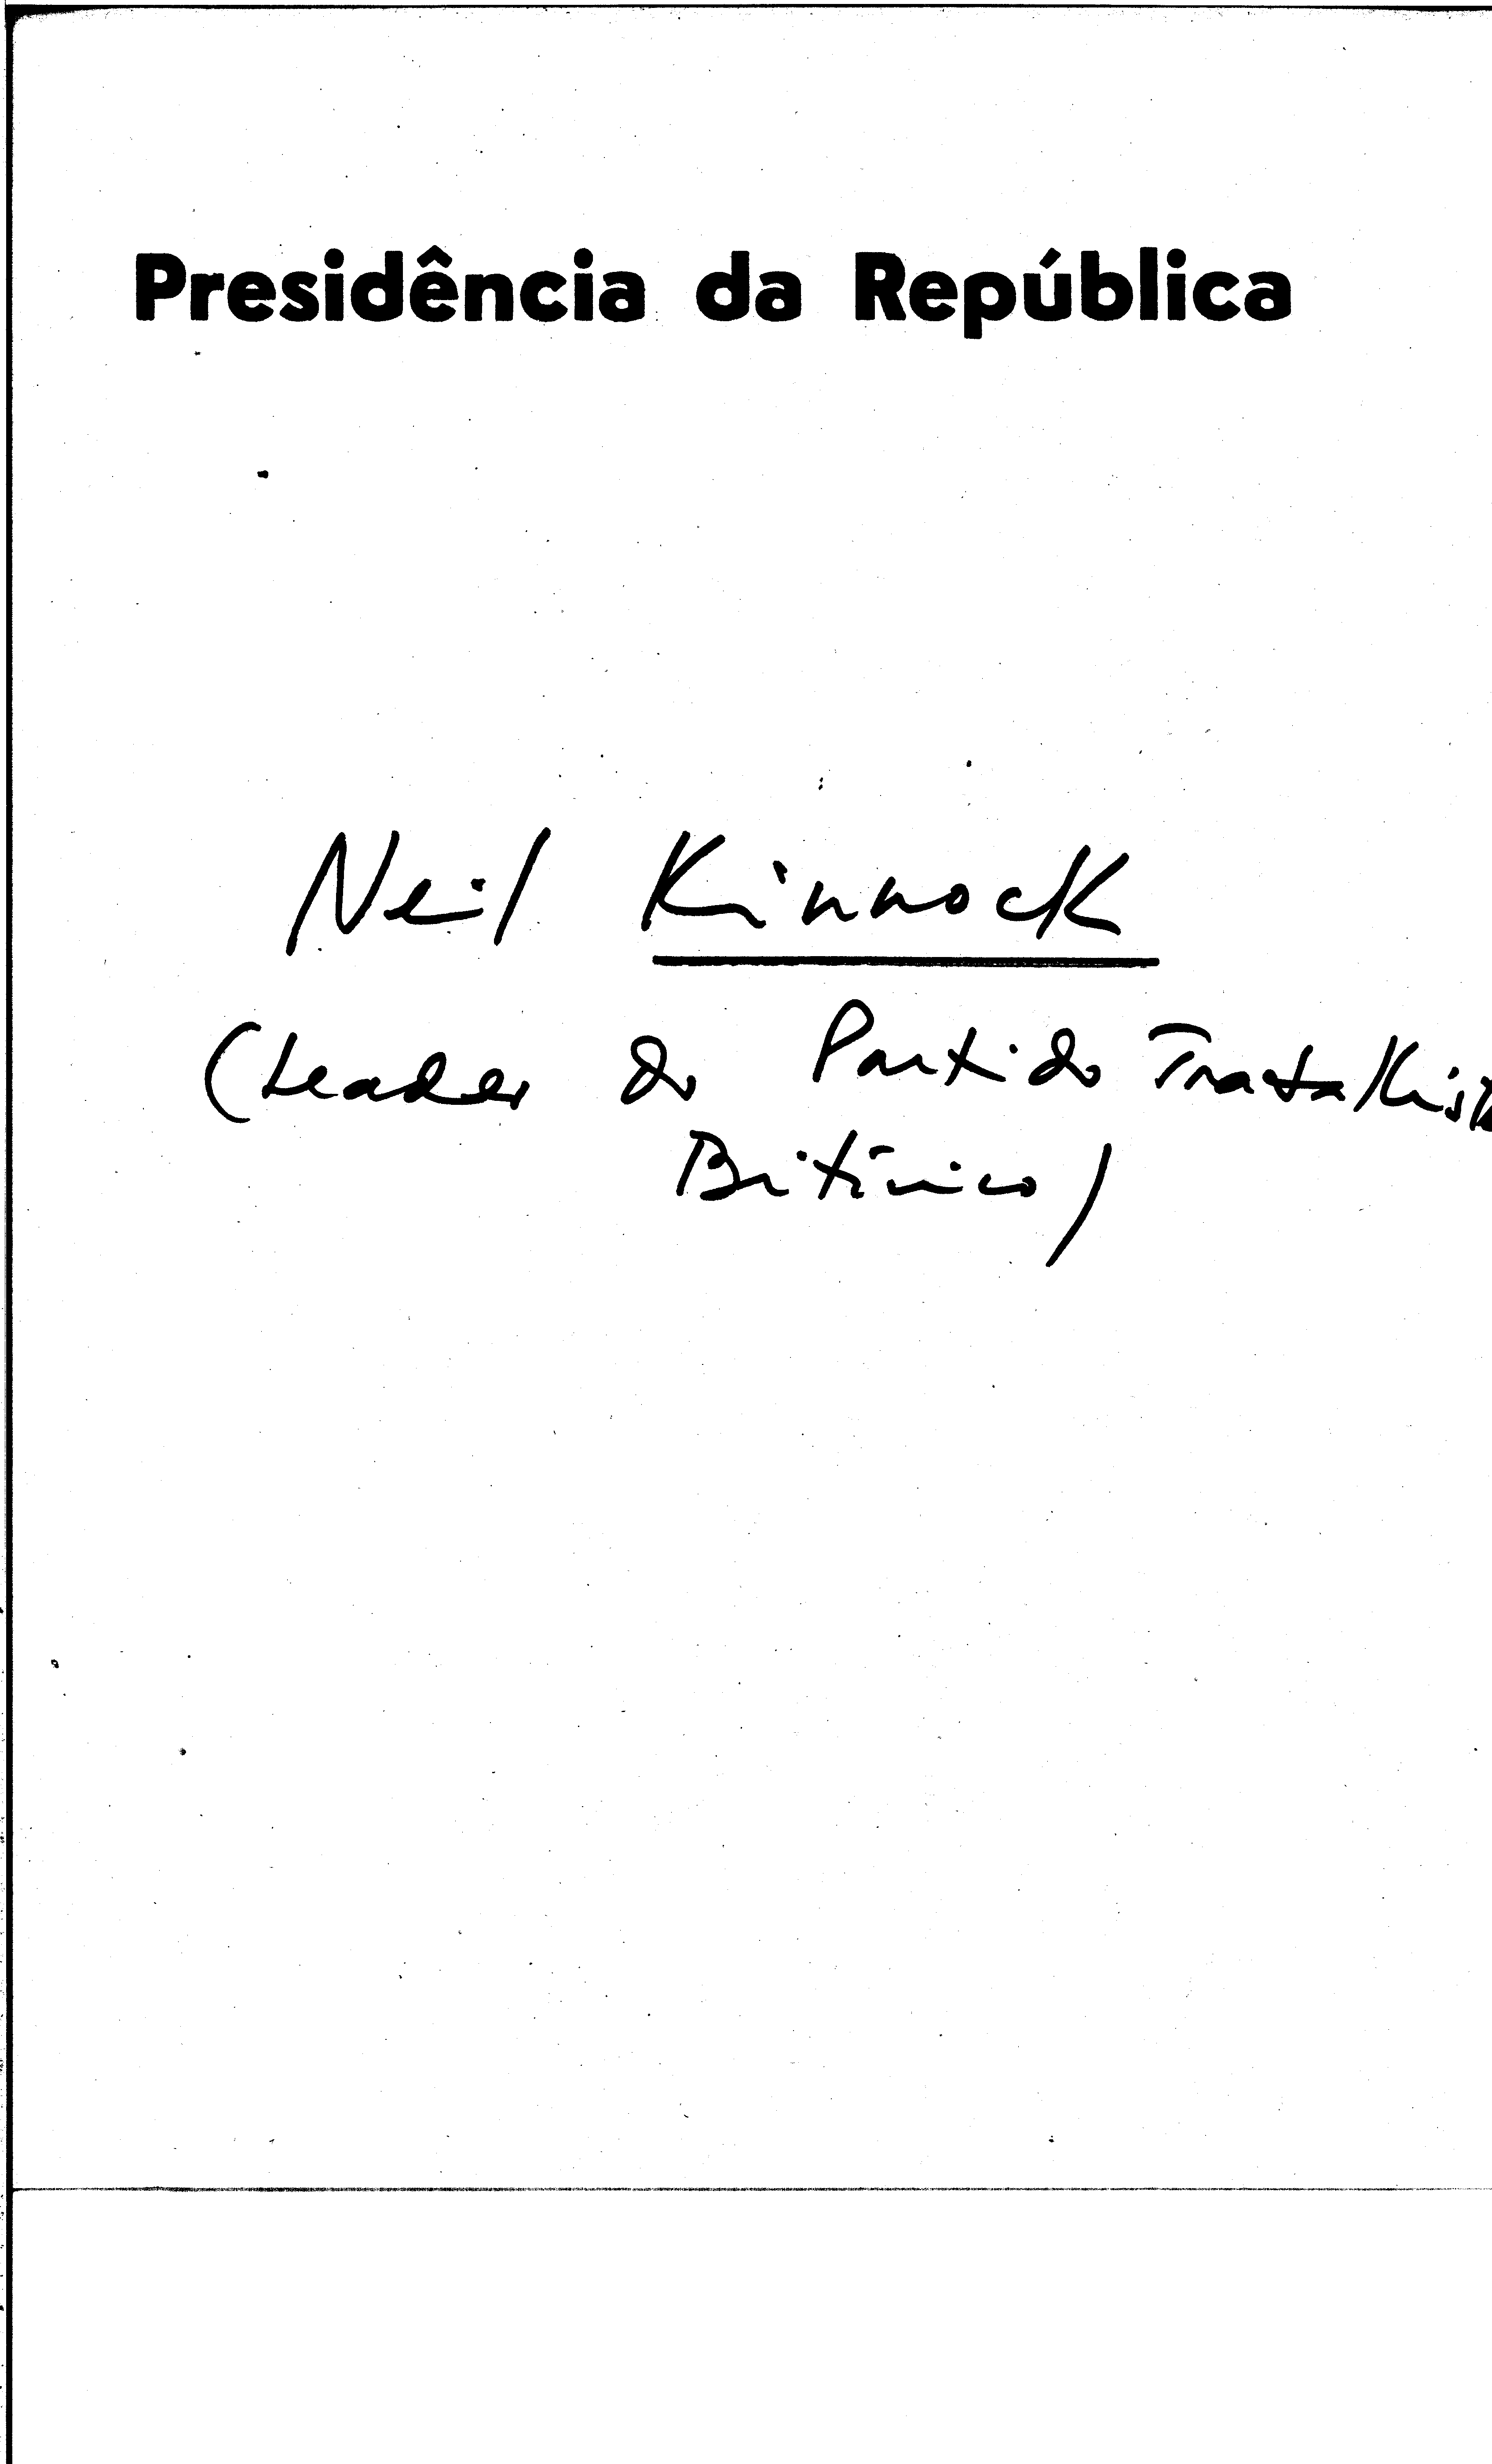 Presidência da República
Neil Kinnock
(Leader do Partido Trabalhista
Britânico)